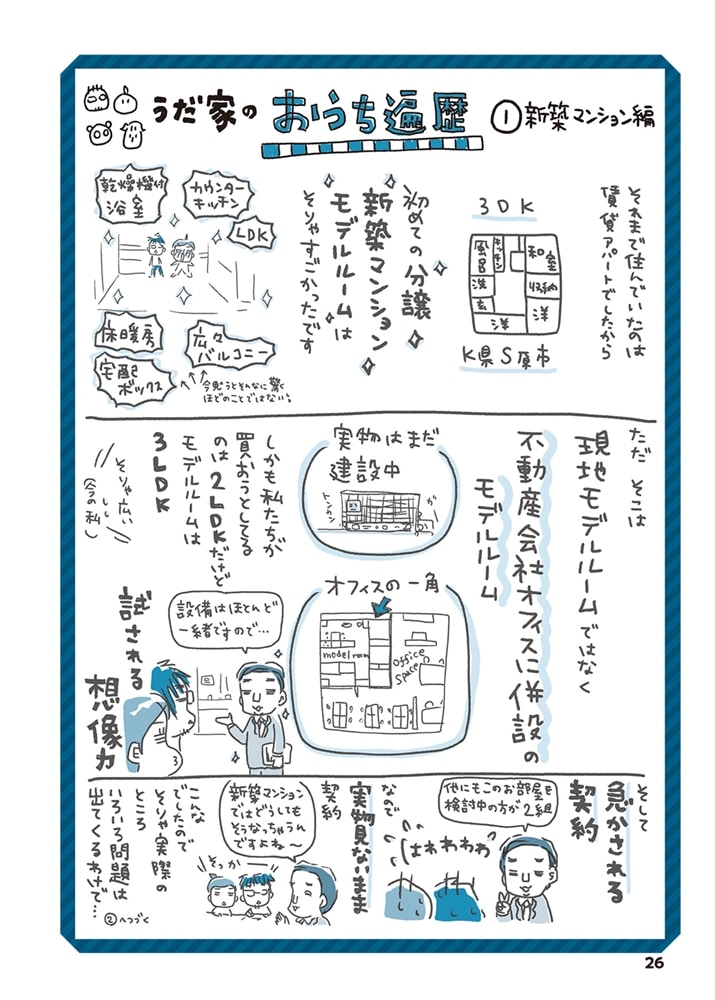 うだ家の
おうち遍歴
①新築マンション編
それまで住んでいたのは
賃貸アパートでしたから
3DK
風呂
キッチン
和室
洗
収納
玄
洋
洋
K県S原市
初めての分譲
新築マンション
モデルルームは
そりゃすごかったです
乾燥機付
浴室
カウンター
キッチン
LDK
床暖房
広々
バルコニー
宅配
ボックス
今思うとそんなに驚く
ほどのことではない。
ただ そこは
現地モデルルームではなく
不動産会社オフィスに併設の
モデルルーム
実物はまだ
建設中
トンカン
ガ
オフィスの一角
model room
office
space
しかも私たちが
買おうとしてる
のは2LDKだけど
モデルルームは
3LDK
そりゃ広いし
(今の私)
設備はほとんど
一緒ですので…
試される
想像力
そして
急かされる
契約
他にもこのお部屋を
検討中の方が2組
はわわわわ
なので
実物見ないまま
契約
新築マンション
ではどうしても
そうなっちゃうん
ですよね〜
そっかー
こんな
でしたので
そりゃ実際の
ところ
いろいろ問題は
出てくるわけで…
②へつづく
26